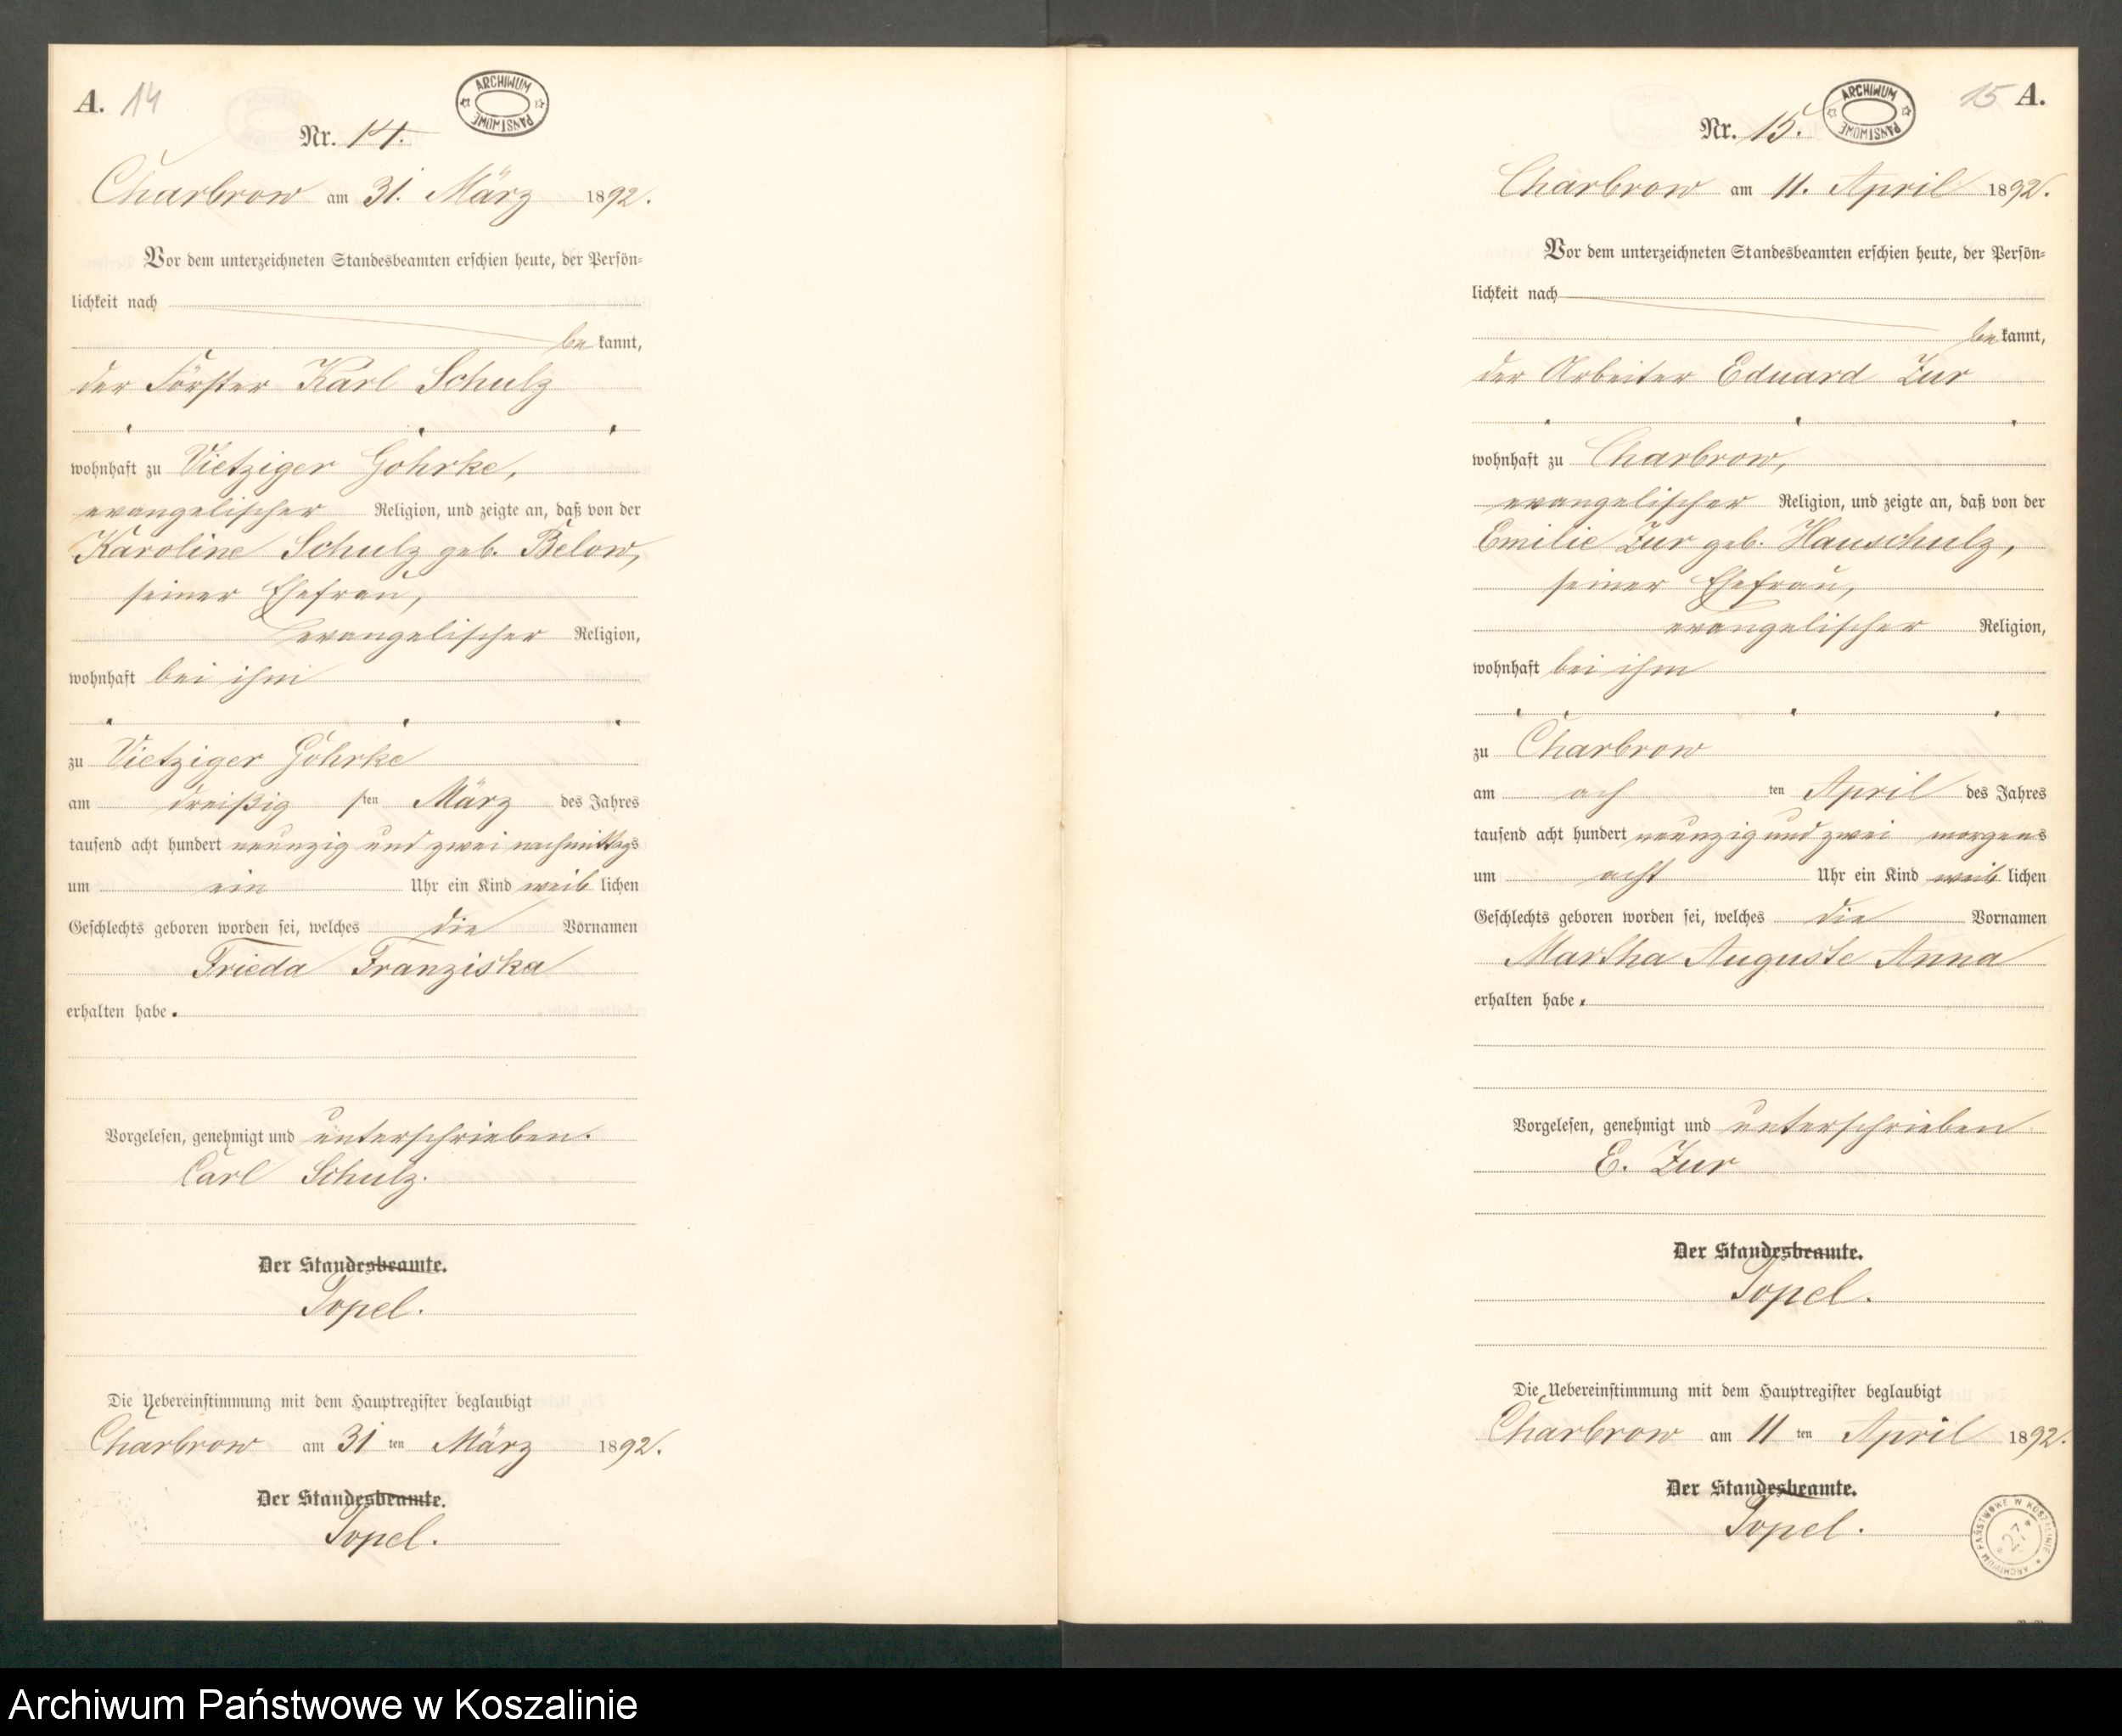 A. 14
ARCHIWUM PAŃSTWOWE
Nr. 14.
Charbrow am 31. März 1892.
Vor dem unterzeichneten Standesbeamten erschien heute, der Persön-
lichkeit nach
bekannt,
der Förster Karl Schulz
wohnhaft zu Vietziger Gohrke,
evangelischer Religion, und zeigte an, daß von der
Karoline Schulz geb. Below,
seiner Ehefrau,
evangelischer Religion,
wohnhaft bei ihm
zu Vietziger Gohrke
am dreißigsten März des Jahres
tausend acht hundert neunzig und zwei nachmittags
um ein Uhr ein Kind weiblichen
Geschlechts geboren worden sei, welches die Vornamen
Frieda Franziska
erhalten habe.
Vorgelesen, genehmigt und unterschrieben.
Carl Schulz.
Der Standesbeamte.
Topel.
Die Uebereinstimmung mit dem Hauptregister beglaubigt
Charbrow am 31 ten März 1892.
Der Standesbeamte.
Topel.
15 A.
ARCHIWUM PAŃSTWOWE
Nr. 15.
Charbrow am 11. April 1892.
Vor dem unterzeichneten Standesbeamten erschien heute, der Persön-
lichkeit nach
bekannt,
der Arbeiter Eduard Zur
wohnhaft zu Charbrow,
evangelischer Religion, und zeigte an, daß von der
Emilie Zur geb. Hauschulz,
seiner Ehefrau,
evangelischer Religion,
wohnhaft bei ihm
zu Charbrow
am ach ten April des Jahres
tausend acht hundert neunzig und zwei morgens
um acht Uhr ein Kind weiblichen
Geschlechts geboren worden sei, welches die Vornamen
Martha Auguste Anna
erhalten habe.
Vorgelesen, genehmigt und unterschrieben
E. Zur
Der Standesbeamte.
Topel.
Die Uebereinstimmung mit dem Hauptregister beglaubigt
Charbrow am 11 ten April 1892.
Der Standesbeamte.
Topel.
ARCHIWUM PAŃSTWOWE W KOSZALINIE
27
Archiwum Państwowe w Koszalinie